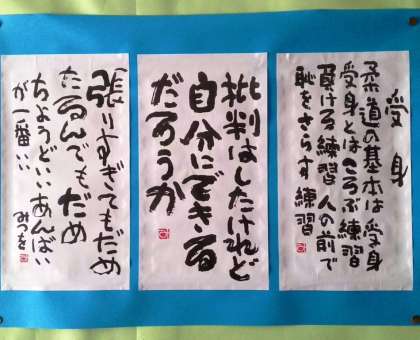 受身
柔道の基本は 受身
受身とは ころぶ練習
負ける練習 人の前で
恥をさらす 練習
批判はしたけれど
自分にできる
だろうか
張りすぎてもだめ
たるんでもだめ
ちょうどいいあんばい
が一番いい
みつを